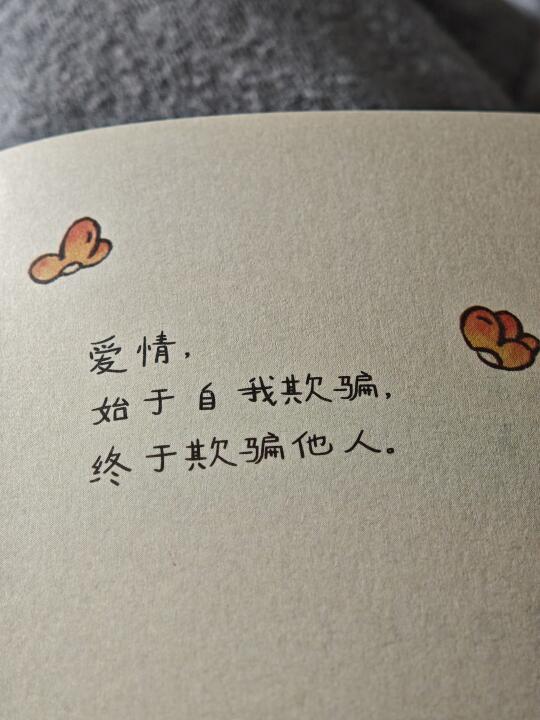 爱情，
始于自我欺骗，
终于欺骗他人。